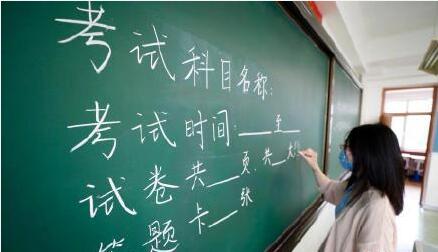 考试科目名称：
考试时间：___至___
试卷共___页，共___大
答题卡___张